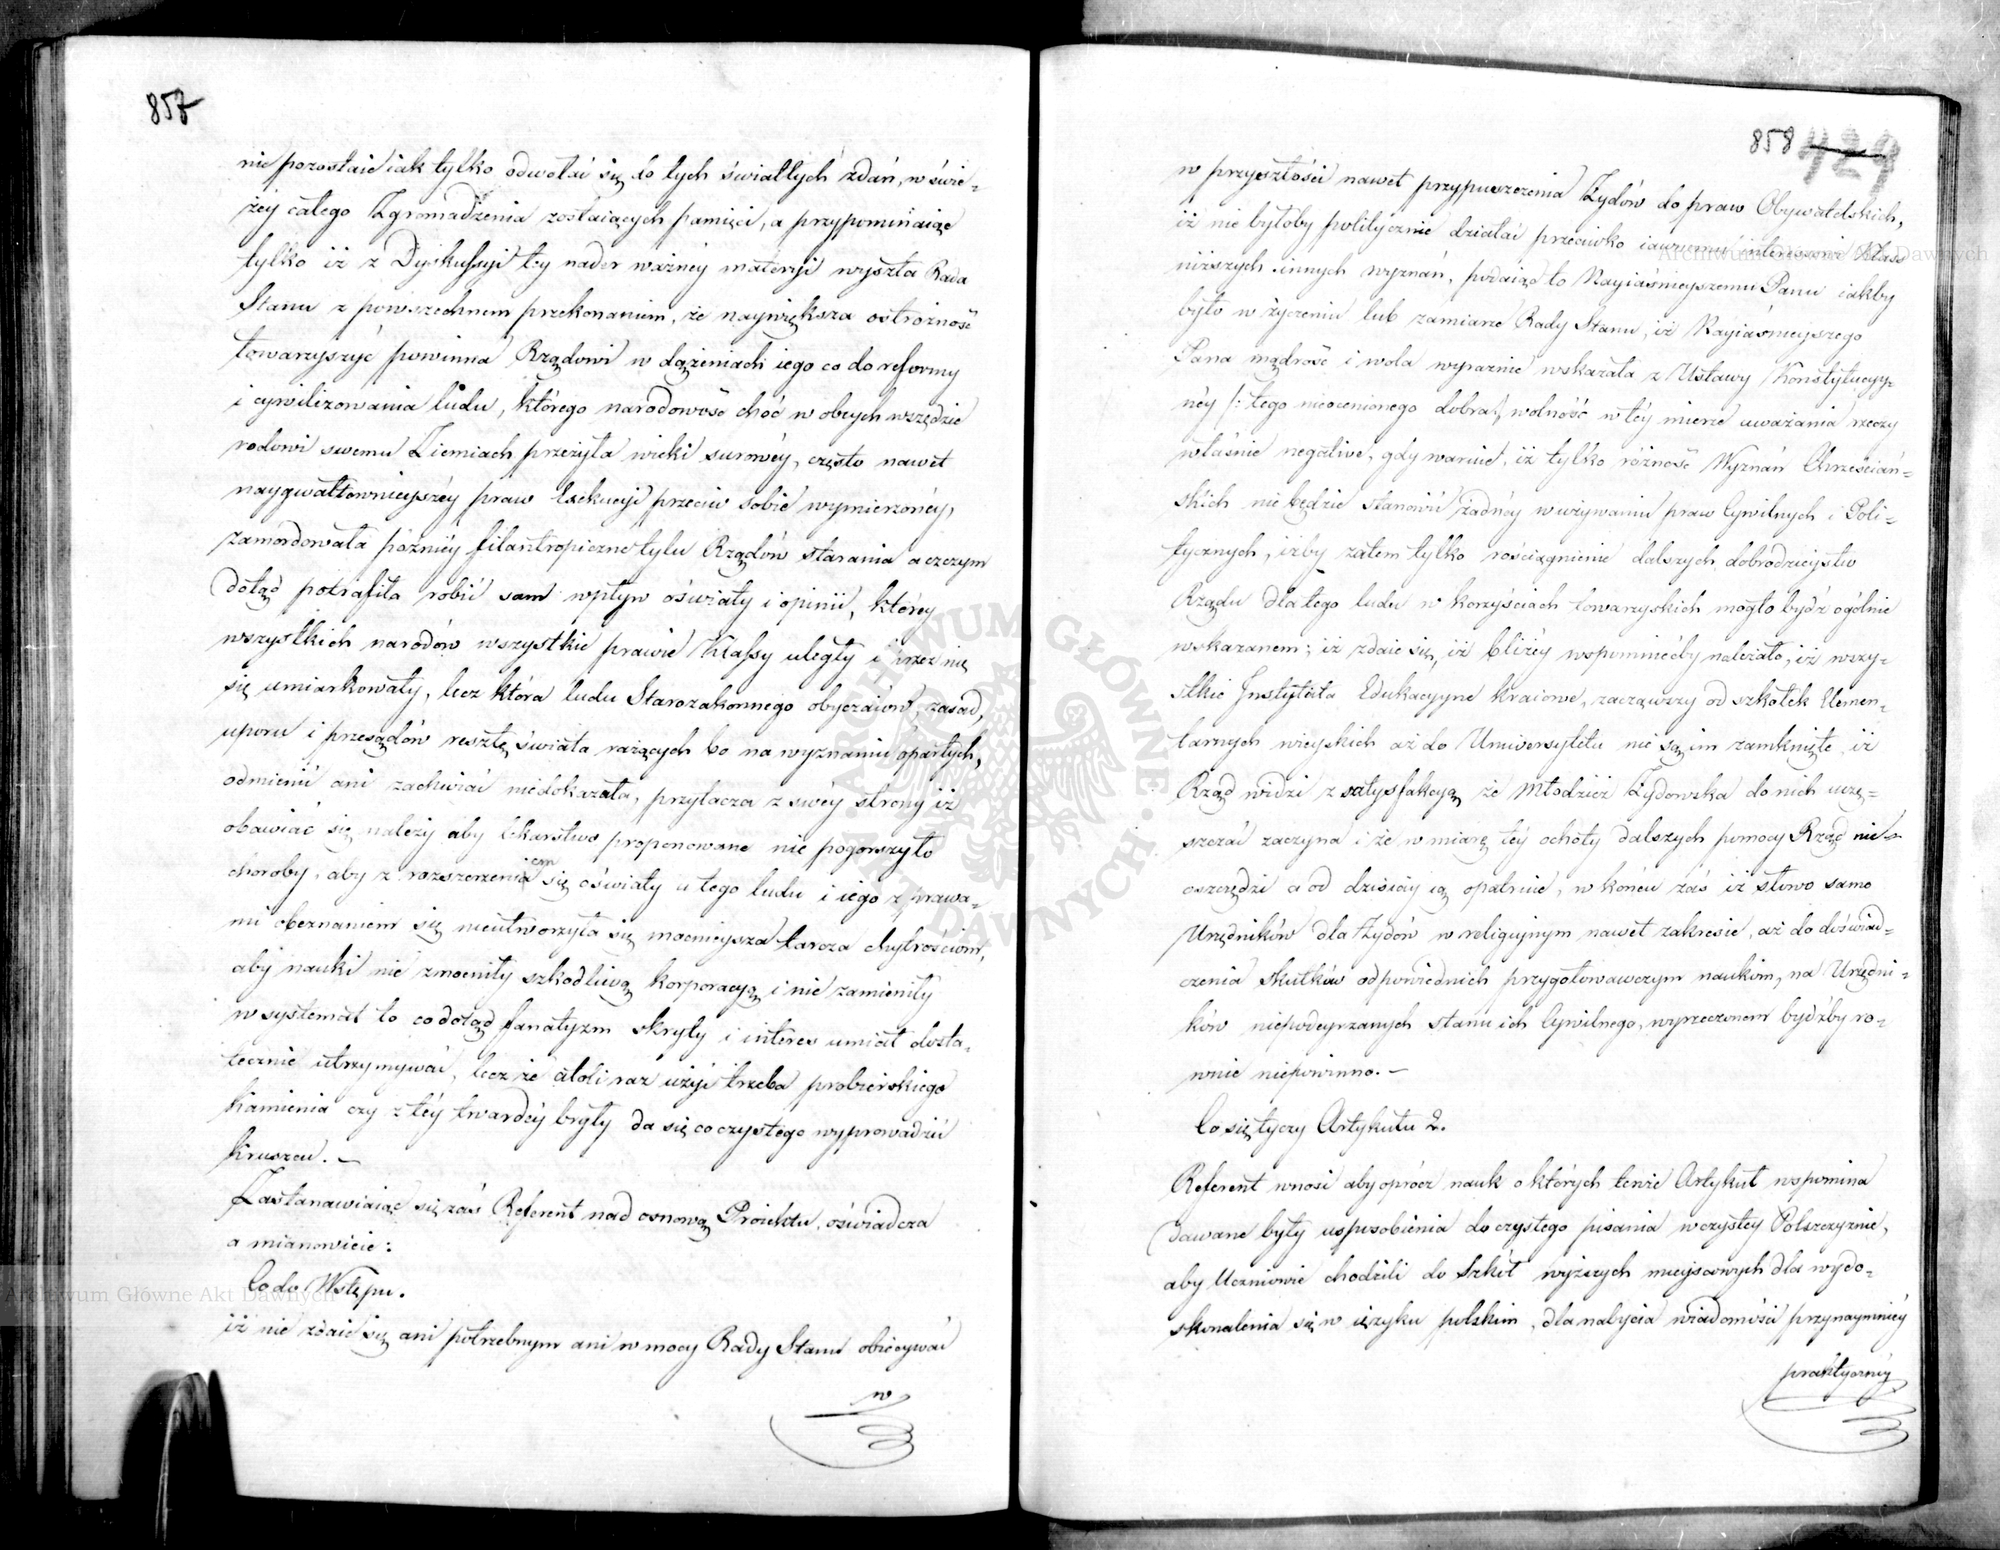 857
nie pozostaie iak tylko odwołać się do tych światłych zdań, w świe-
żey całego Zgromadzenia zostaiących pamięci, a przypominaiąc
tylko iż z Dyskussyi tey nader ważney materyi wyszła Rada
Stanu z powszechnem przekonaniem, że naywiększa ostrożność
towarzyszyć powinna Rządowi w dążeniach iego co do reformy
i cywilizowania ludu, którego narodowość choć w obcych wszędzie
rodowi swemu Ziemiach przeżyła wieki surowéy, często nawet
naygwałtownieyszéy praw Exekucyi przeciw sobie wymierzonéy,
zamordowała pózniéy filantropiczne tylu Rządów starania a czczym
dotąd potrafiła robić sam wpływ oświaty i opinii, któréy
wszystkich narodów wszystkie prawie Klassy uległy i przez nię
się umiarkowały, lecz która ludu Starozakonnego obyczaiów, zasad,
uporu i przesądów resztę świata rażących bo na wyznaniu opartych,
odmienić ani zachwiać niedokazała, przytacza z swéy strony iż
obawiać się należy aby lekarstwo proponowane nie pogorszyło
choroby, aby z rozszerzeniem się oświaty u tego ludu i iego z prawa-
mi obeznaniem się nieutworzyła się mocnieysza tarcza chytrościom,
aby nauki nie zmocniły szkodliwą korporacyą i nie zamieniły
w systemat to co dotąd fanatyzm skryty i interes umiał dosta-
tecznie utrzymywać, lecz że atoli raz użyć trzeba probierskiego
Kamienia czy z téy twardéy bryły da się co czystego wyprowadzić
kruszcu. —
Zastanawiaiąc się zaś Referent nad osnową Proiektu, oświadcza
a mianowicie:
Co do Wstępu.
iż nie zdaie się ani potrzebnym ani w mocy Rady Stanu obiecywać
w
858 429
w przyszłości nawet przypuszczenia Żydów do praw Obywatelskich,
iż nie byłoby politycznie działać przeciwko iawnemu interessowi Klass
niższych innych wyznań, podaiąc to Nayiaśnieyszemu Panu iakby
było w życzeniu lub zamiarze Rady Stanu, iż Nayiaśnieyszego
Pana mądrość i wola wyraźnie wskazała z Ustawy Konstytucyy-
néy /: tego nieocenionego dobra, wolność w téy mierze uważania rzeczy
właśnie negative, gdy waruie, iż tylko różność Wyznań Chrześciań-
skich nie będzie stanowić żadnéy w używaniu praw Cywilnych i Poli-
tycznych, iżby zatem tylko rościągnienie dalszych dobrodzieystw
Rządu dla tego ludu w korzyściach towarzyskich mogło bydź ogólnie
wskazanem; iż zdaie się, iż bliżéy wspomniećby należało, iż wszy-
stkie Instytuta Edukacyyne kraiowe, zacząwszy od szkółek Elemen-
tarnych wieyskich aż do Uniwersytetu nie są im zamknięte, iż
Rząd widzi z satysfakcyą że Młodzież Żydowska do nich uczę-
szczać zaczyna i że w miarę téy ochoty dalszych pomocy Rząd nie
oszczędzi a od dzisiay ią opatruie, w końcu zaś iż słowo samo
Urzędników dla Żydów w religiynym nawet zakresie, aż do doświad-
czenia skutków odpowiednich przygotowawczym naukom, na Urzędni-
ków niepodeyrzanych stanu ich Cywilnego, wyrzeczonem bydźby ro-
wnie niepowinno. —
Co się tyczy Artykułu 2.
Referent wnosi aby oprócz nauk o których tenże Artykuł wspomina
dawane były usposobienia do czystego pisania w czystey Polszczyznie,
aby Uczniowie chodzili do Szkół wyższych mieyscowych dla wydo-
skonalenia się w ięzyku polskim, dla nabycia wiadomości przynaymniéy
praktycznéy